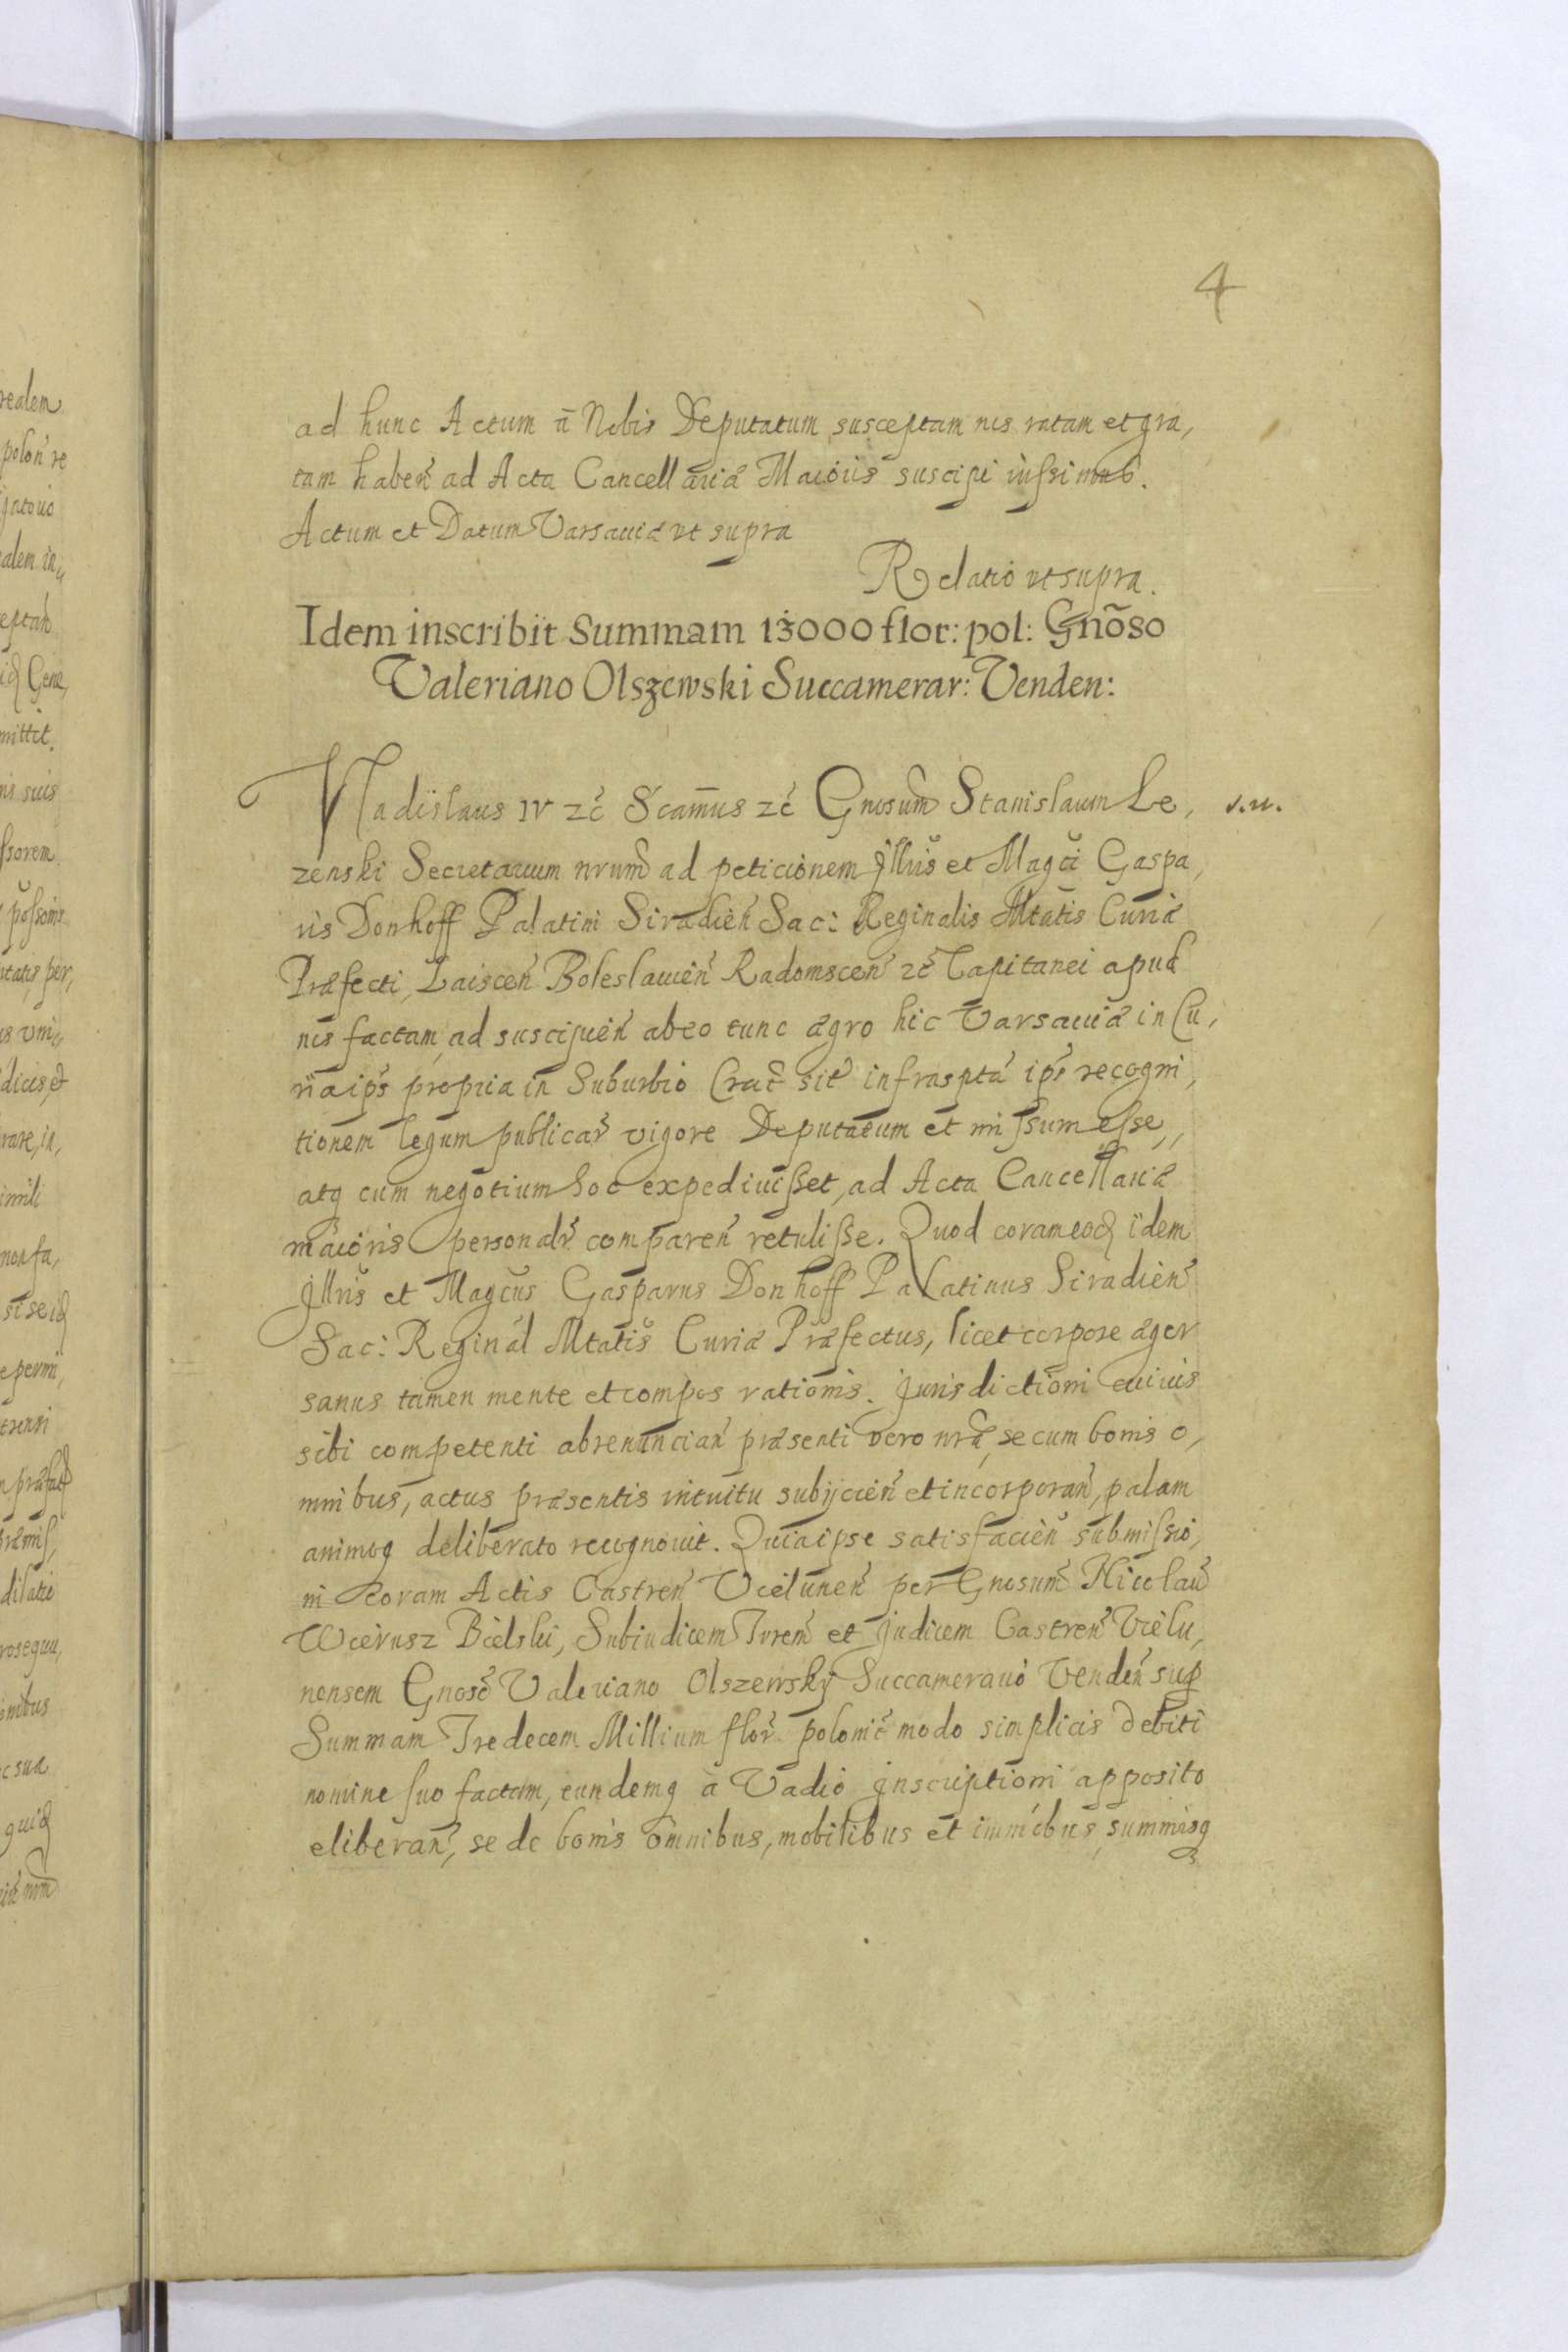 4
ad hunc Actum a Nobis Deputatum susceptam nos ratam et gra,
tam haben̄ ad Acta Cancellariæ Maioris suscipi iussimus.
Actum et Datum Varsauiæ vt supra
Relatio vt supra.
Idem inscribit Summam 13000 flor: pol: Gnõso
Valeriano Olszewski Succamerar: Venden:
Vladislaus IV zc̄ Scam̄us zc̄ Gnosum̄ Stanislaum Le,
s.n.
zenski Secretarium nrum̄ ad peticionem Jllris et Magci Gaspa,
ris Donhoff Palatini Siradien̄ Sac: Reginalis Mtatis Curiæ
Præfecti, Laiscen̄ Boleslauien̄ Radomscen̄ zc̄ Capitanei apud
nos factam, ad suscipien̄ ab eo tunc ægro hic Varsauiæ in Cu,
ria ips propria in Suburbio Crac̄ sit̄ infrasptā ips recogni,
tionem legum publicar̄ vigore Deputatum et missum esse,
atq cum negotium hoc expediuisset, ad Acta Cancellariæ
maioris personalr̄ comparen̄ retulisse. Quod coram eod idem
Jllris et Magcus Gasparus Donhoff Palatinus Siradien̄
Sac: Reginal Mtatis Curiæ Præfectus, licet corpore æger
sanus tamen mente et compos rationis. Jurisdictioni cuiuis
sibi competenti abrenuncian̄ præsenti vero nræ, se cum bonis o,
mnibus, actus præsentis intuitu subijcien̄ et incorporan̄, palam
animoq deliberato recognouit. Quia ipse satisfacien̄ submissio,
ni coram Actis Castren̄ Vielunen̄ per Gnosum̄ Nicolau̅
Wierusz Bielski, Subiudicem Trrem̄ et Judicem Castren̄ Vielu,
nensem Gnoso Valeriano Olszewsky Succamerario Venden̄ sup
Summam Tredecem Millium flor̄ polonic̄ modo simplicis debiti
nomine suo factam, eundemq a Vadio Jnscriptioni apposito
eliberan̄, se de bonis omnibus, mobilibus et immobus, summisq